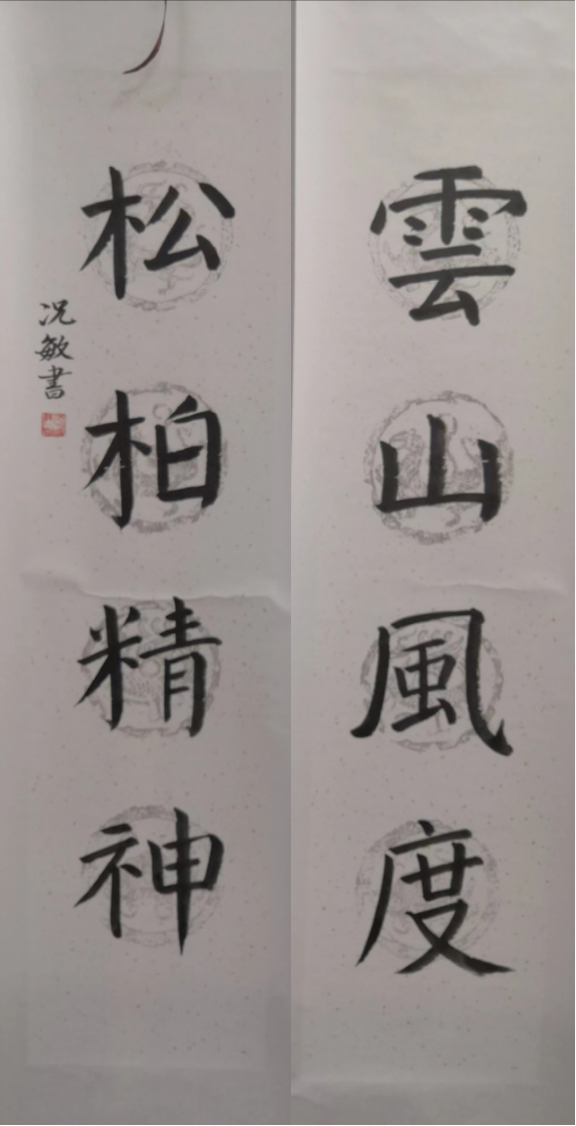 雲山風度
松柏精神
况敏書